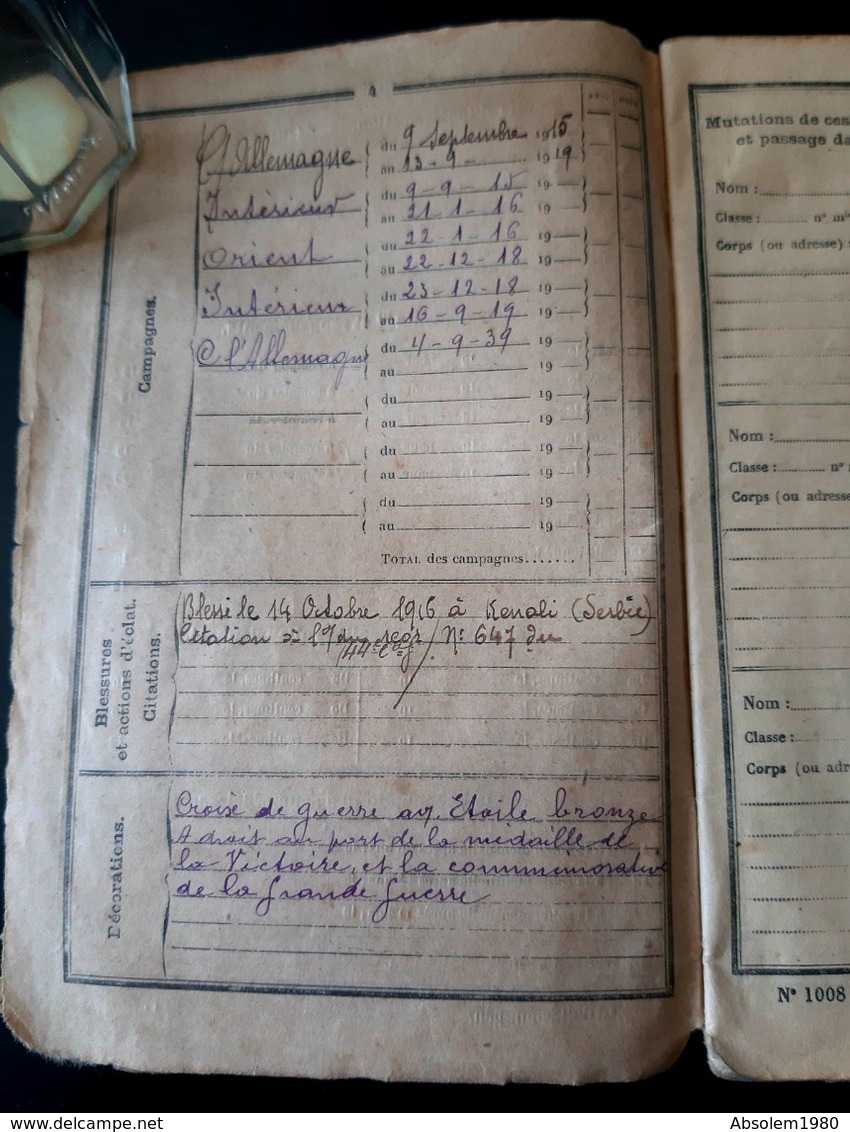 4
Campagnes.
Allemagne { du 9 Septembre 1915
au 13-9- 1919
Intérieur { du 9-9-15 19
au 21-1-16 19
Orient { du 22-1-16 19
au 22-12-18 19
Intérieur { du 23-12-18 19
au 16-9-19 19
C l'Allemagne { du 4-9-39 19
au 19
{ du 19
{ au 19
{ du 19
{ au 19
{ du 19
{ au 19
TOTAL des campagnes.......
Blessures
et actions d'éclat.
Citations.
Blessé le 14 Octobre 1916 à Kenali (Serbie)
Citation à l' du N° 647 du
44e
Décorations.
Croix de guerre av. Etoile bronze
A droit au port de la médaille de
la Victoire, et la commémorative
de la Grande Guerre
Mutations de ces
et passage da
Nom :
Classe : n° m
Corps (ou adresse) :
Nom :
Classe : n°
Corps (ou adresse
Nom :
Classe :
Corps (ou adr
N° 1008
www.delcampe.net
Absolem1980